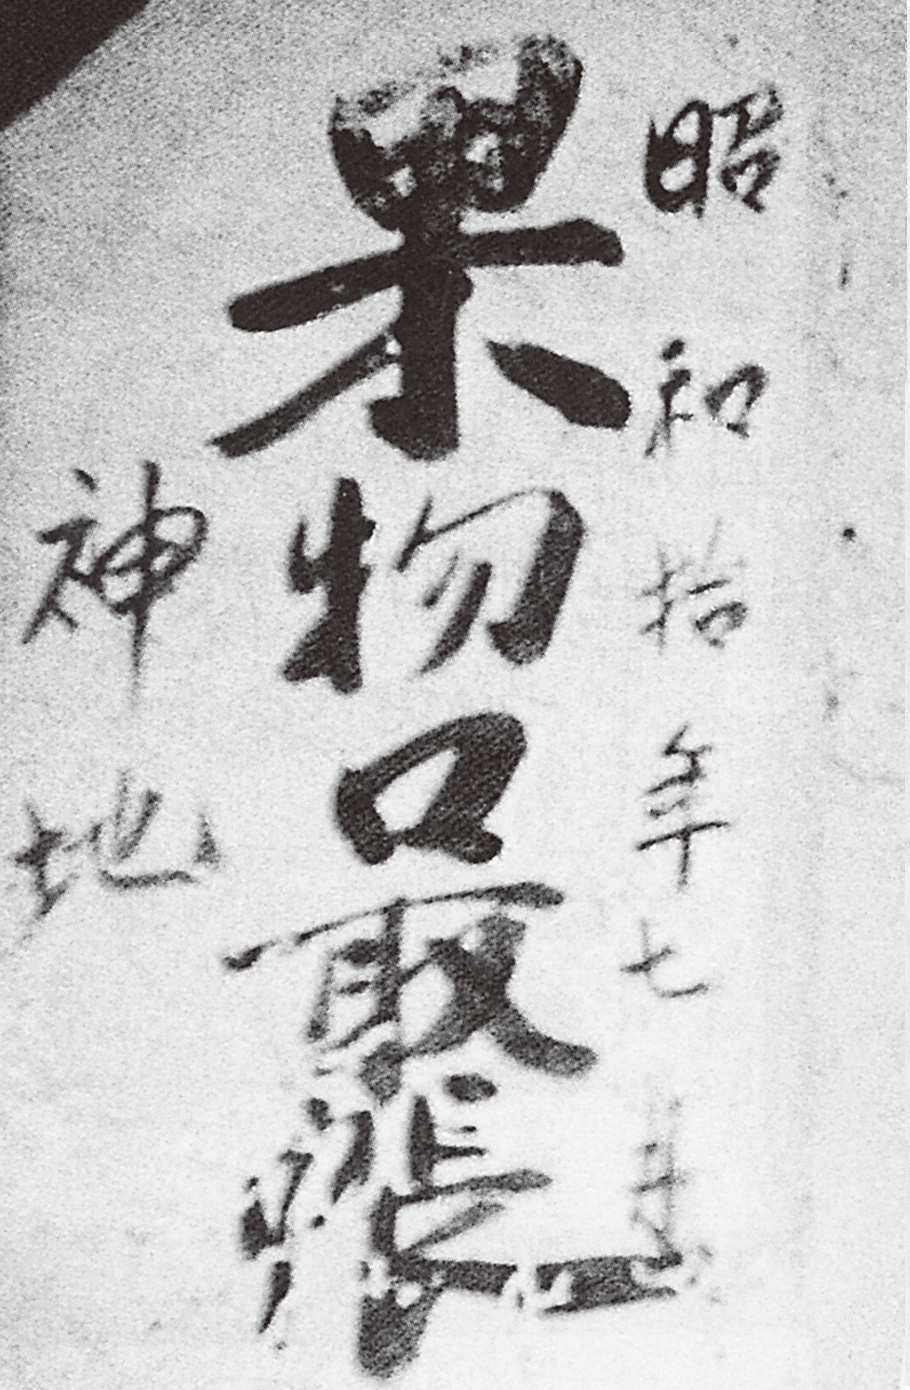 昭和拾年七
果物口取帳
神地